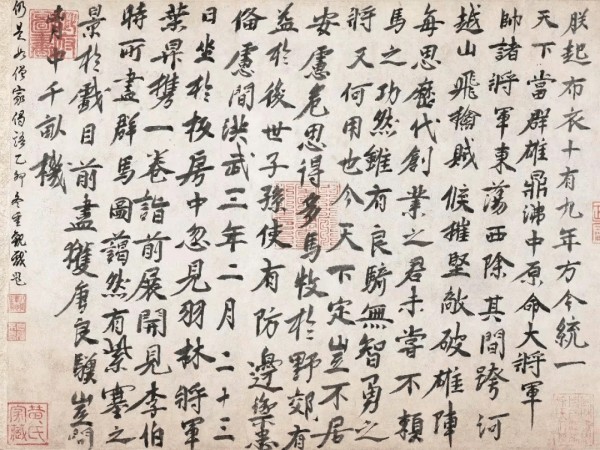 朕起布衣十有九年方今統一
天下當群雄鼎沸中原命大將軍
帥諸將軍東蕩西除其間跨河
越山飛擒賊候摧堅敵破雄陣
每思歷代創業之君未嘗不賴
馬之功然雖有良騎無智勇之
將又何用也今天下定豈不居
安慮危思得多馬牧於野郊有
益於後世子孫使有防邊禦患
備慮間洪武三年二月二十三
日坐於板房中忽見羽林將軍
葉昇携一卷詣前展開見李伯
時所畫群馬圖藹然有紫塞之
景於戲目前盡獲唐良驥豈問
中千畝機
如僧家偈語乙卯冬重觀戲題